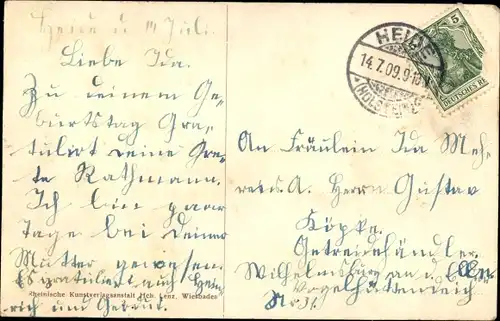 Heide d. 14 Juli.
Liebe Ida.
Zu deinem Ge-
burtstag Gra-
tulirt deine Gre-
te Rathmann.
Ich bin paar
Tage bei Deiner
Mutter gewesen.
Es gratuliert auch Hein-
rich und
Rheinische Kunstverlagsanstalt Hch. Lenz, Wiesbaden
HEIDE
14.7.09.9-10V
(HOLSTEIN)
5
DEUTSCHES REICH
An Fräulein Ida Meh-
rens. A. Herrn Gustav
Köpke.
Getreidehändler.
Wilhelmsburg an d. Elbe.
Vogelhüttendeich
No 31.